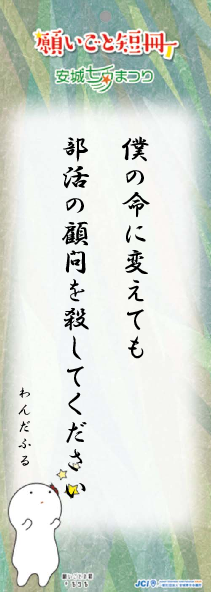 願いごと短冊
安城七夕まつり
僕の命に変えても
部活の顧問を殺してください
わんだふる
JCI